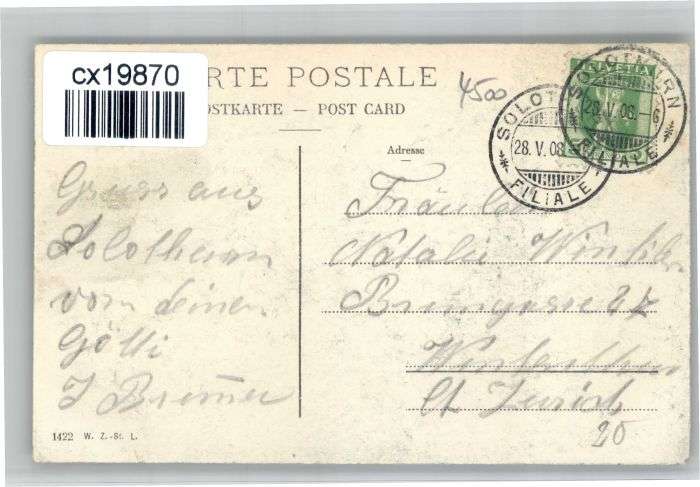 cx19870
RTE POSTALE
OSTKARTE – POST CARD
4500
SOLOTHURN
28.V.08
FILIALE
SOLOTHURN
28.V.08. 6
FILIALE
Adresse
Gruss aus
Solothurn
von deinem
Götti
J Brunner
Fräulein
Natalie
Brunngasse
Winterthur
Ct Zürich
20
1422 W. Z.-St. L.